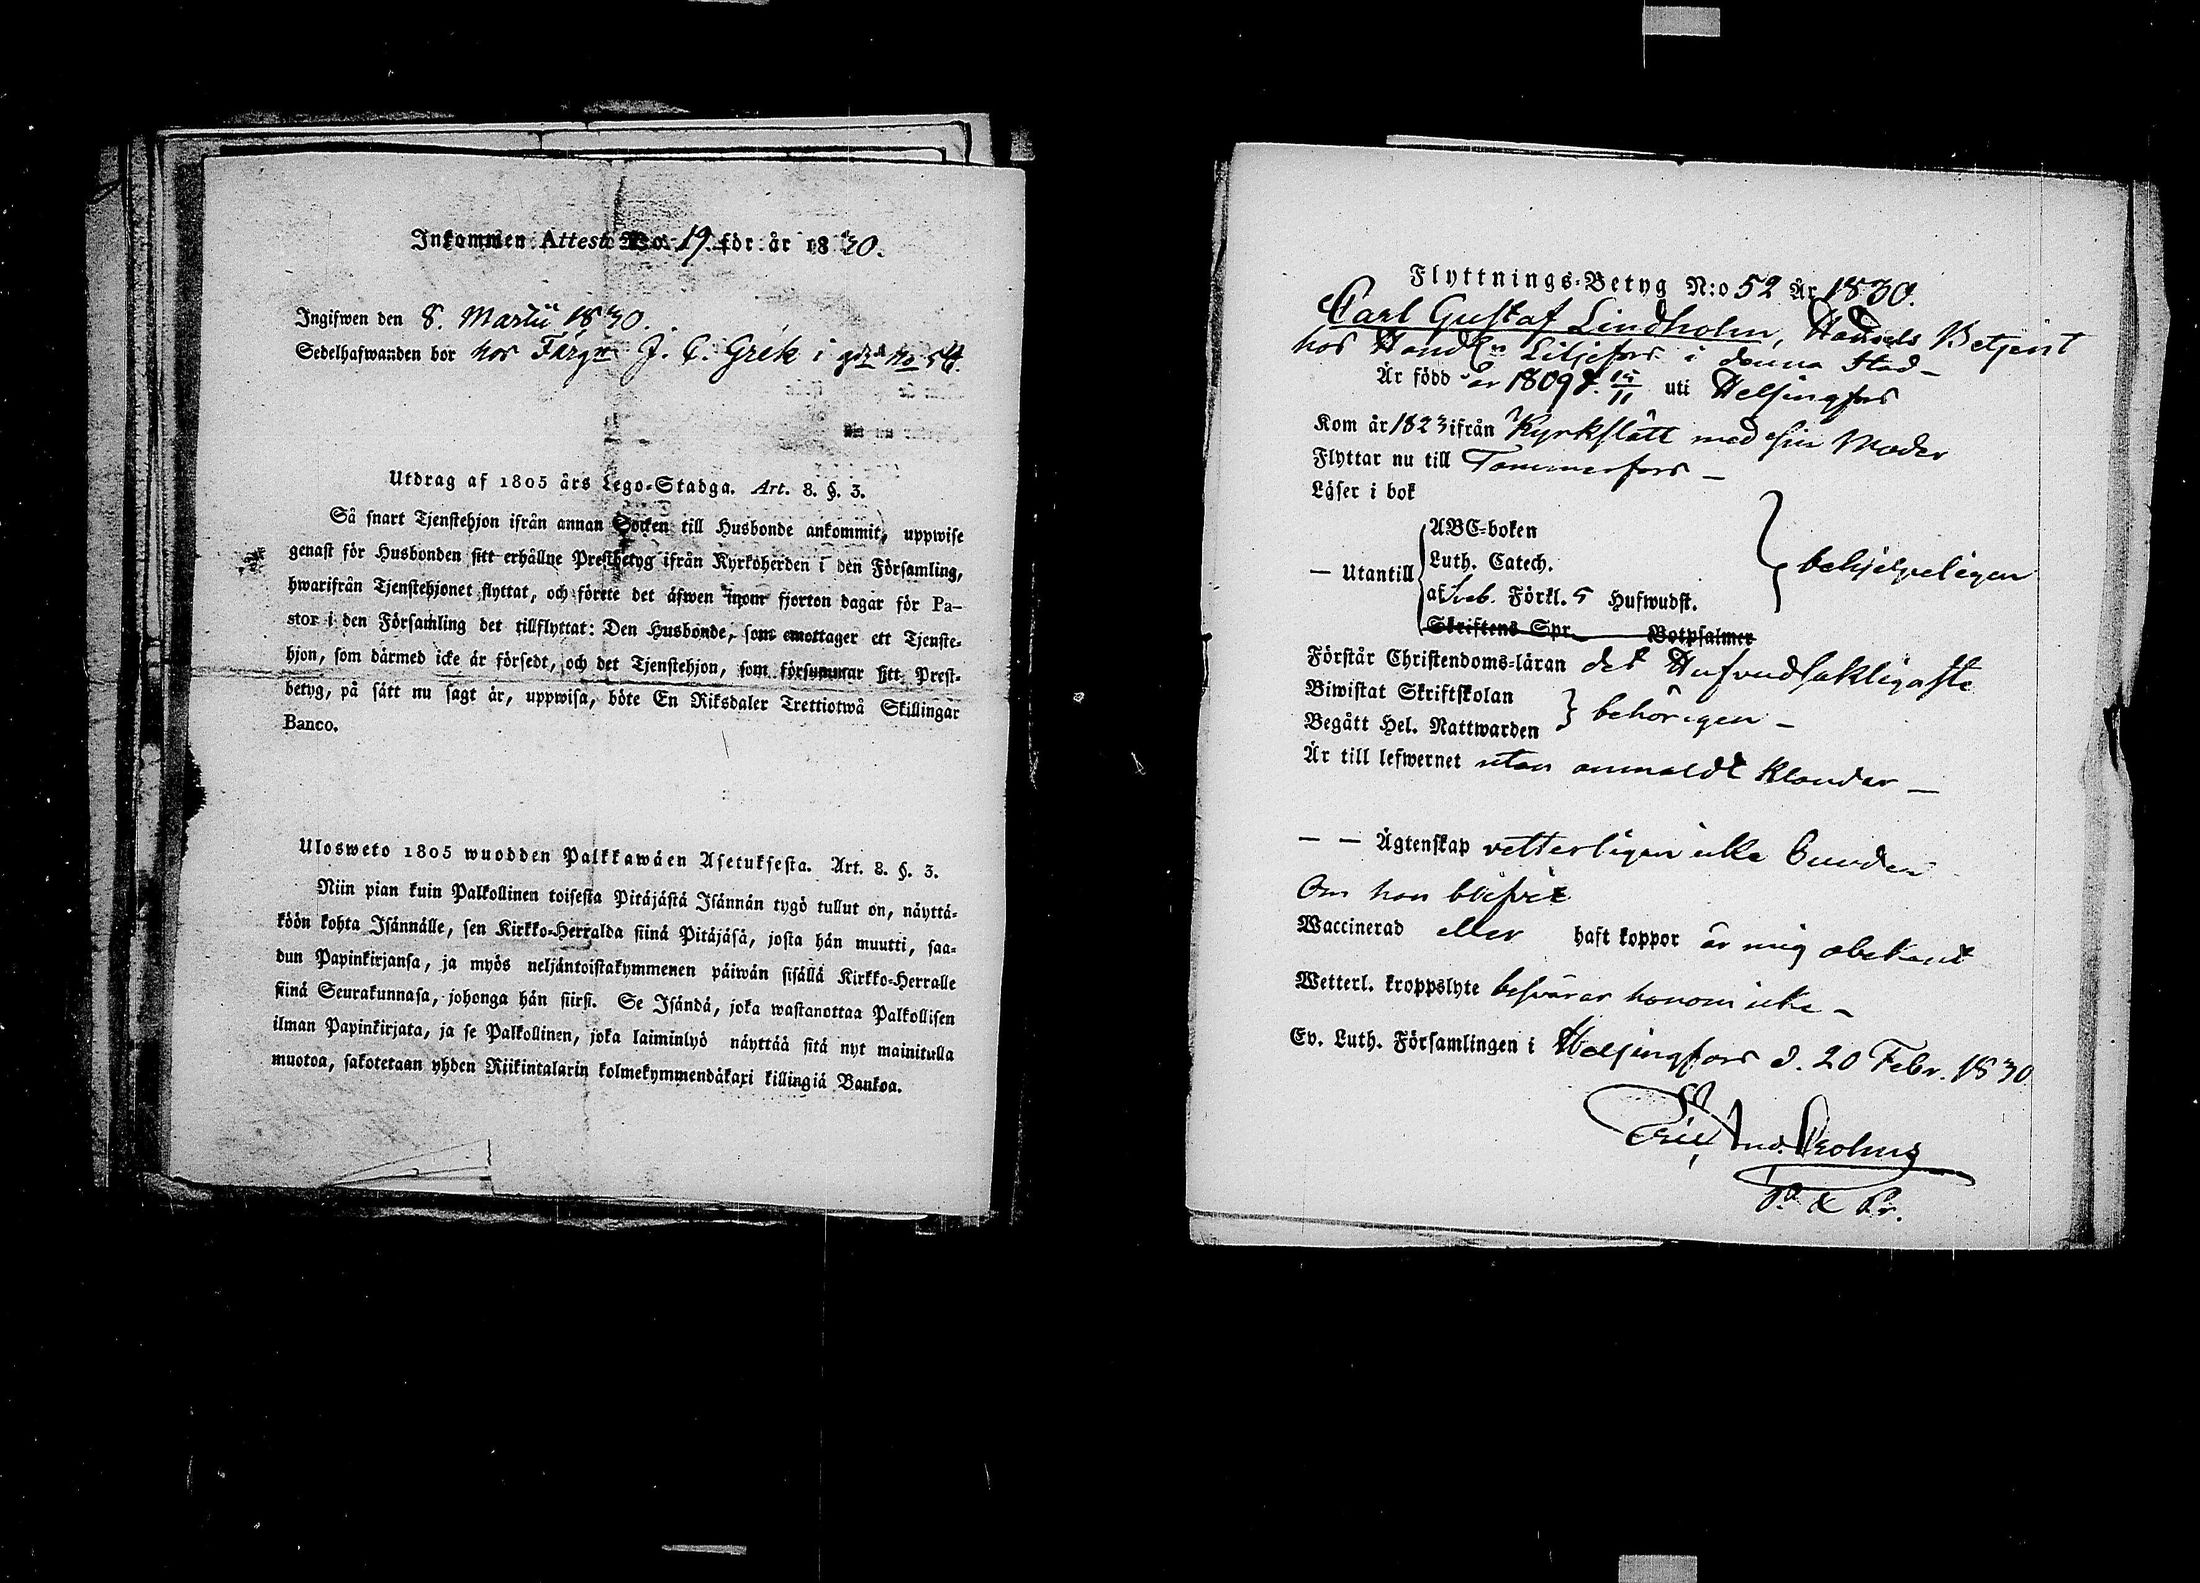 Inkommen Attest No. 19. för år 1830.
Ingifwen den 8. Martii 1830.
Sedelhafwanden bor hos Färgn J. C. Grék i gdn No 54.
Utdrag af 1805 års Lego-Stadga. Art. 8. §. 3.
Så snart Tjenstehjon ifrån annan Socken till Husbonde ankommit, uppwise
genast för Husbonden sitt erhållne Prestbetyg ifrån Kyrkoherden i den Församling,
hwarifrån Tjenstehjonet flyttat, och förete det äfwen inom fjorton dagar för Pa-
stor i den Församling det tillflyttat: Den Husbonde, som emottager ett Tjenste-
hjon, som därmed icke är försedt, och det Tjenstehjon, som försummar sitt Prest-
betyg, på sätt nu sagt är, uppwisa, böte En Riksdaler Trettiotwå Skillingar
Banco.
Ulosweto 1805 wuodden Palkkawäen Asetuksesta. Art. 8. §. 3.
Niin pian kuin Palkollinen toisesta Pitäjästä Isännän tygö tullut on, näyttä-
köön kohta Isännälle, sen Kirkko-Herralda siinä Pitäjäsä, josta hän muutti, saa-
dun Papinkirjansa, ja myös neljäntoistakymmenen päiwän sisällä Kirkko-Herralle
siinä Seurakunnasa, johonga hän siirsi. Se Isändä, joka wastanottaa Palkollisen
ilman Papinkirjata, ja se Palkollinen, joka laiminlyö näyttää sitä nyt mainitulla
muotoa, sakotetaan yhden Riikintalarin kolmekymmendäkaxi killingiä Bankoa.
Flyttnings-Betyg N:o 52 År 1830.
Carl Gustaf Lindholm, Handels Betjent
hos Handl:n Liljefors i denna Stad -
Är född år 1809 d. 15/11 uti Helsingfors
Kom år 1823 ifrån Kyrkslätt med sin Moder
Flyttar nu till Tammerfors -
Läser i bok
ABC-boken
Luth. Catech.
— Utantill
behjelpeligen
af Sveb. Förkl. 5 Hufwudst.
Skriftens Spr. Botpsalmer
Förstår Christendoms-läran det Hufvudsakligaste
Biwistat Skriftskolan
behörigen -
Begått Hel. Nattwarden
Är till lefwernet utan anmäldt klander -
— — Ägtenskap vetterligen icke bunden
Om han blifvit
Waccinerad eller haft koppor är mig obekant
Wetterl. kroppslyte besvärar honom icke -
Ev. Luth. Församlingen i Helsingfors d. 20 Febr. 1830
Eric And. Crohns
P. & Pr.